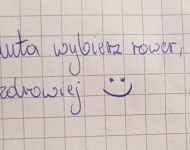 auta wybierz rower,
zdrowiej